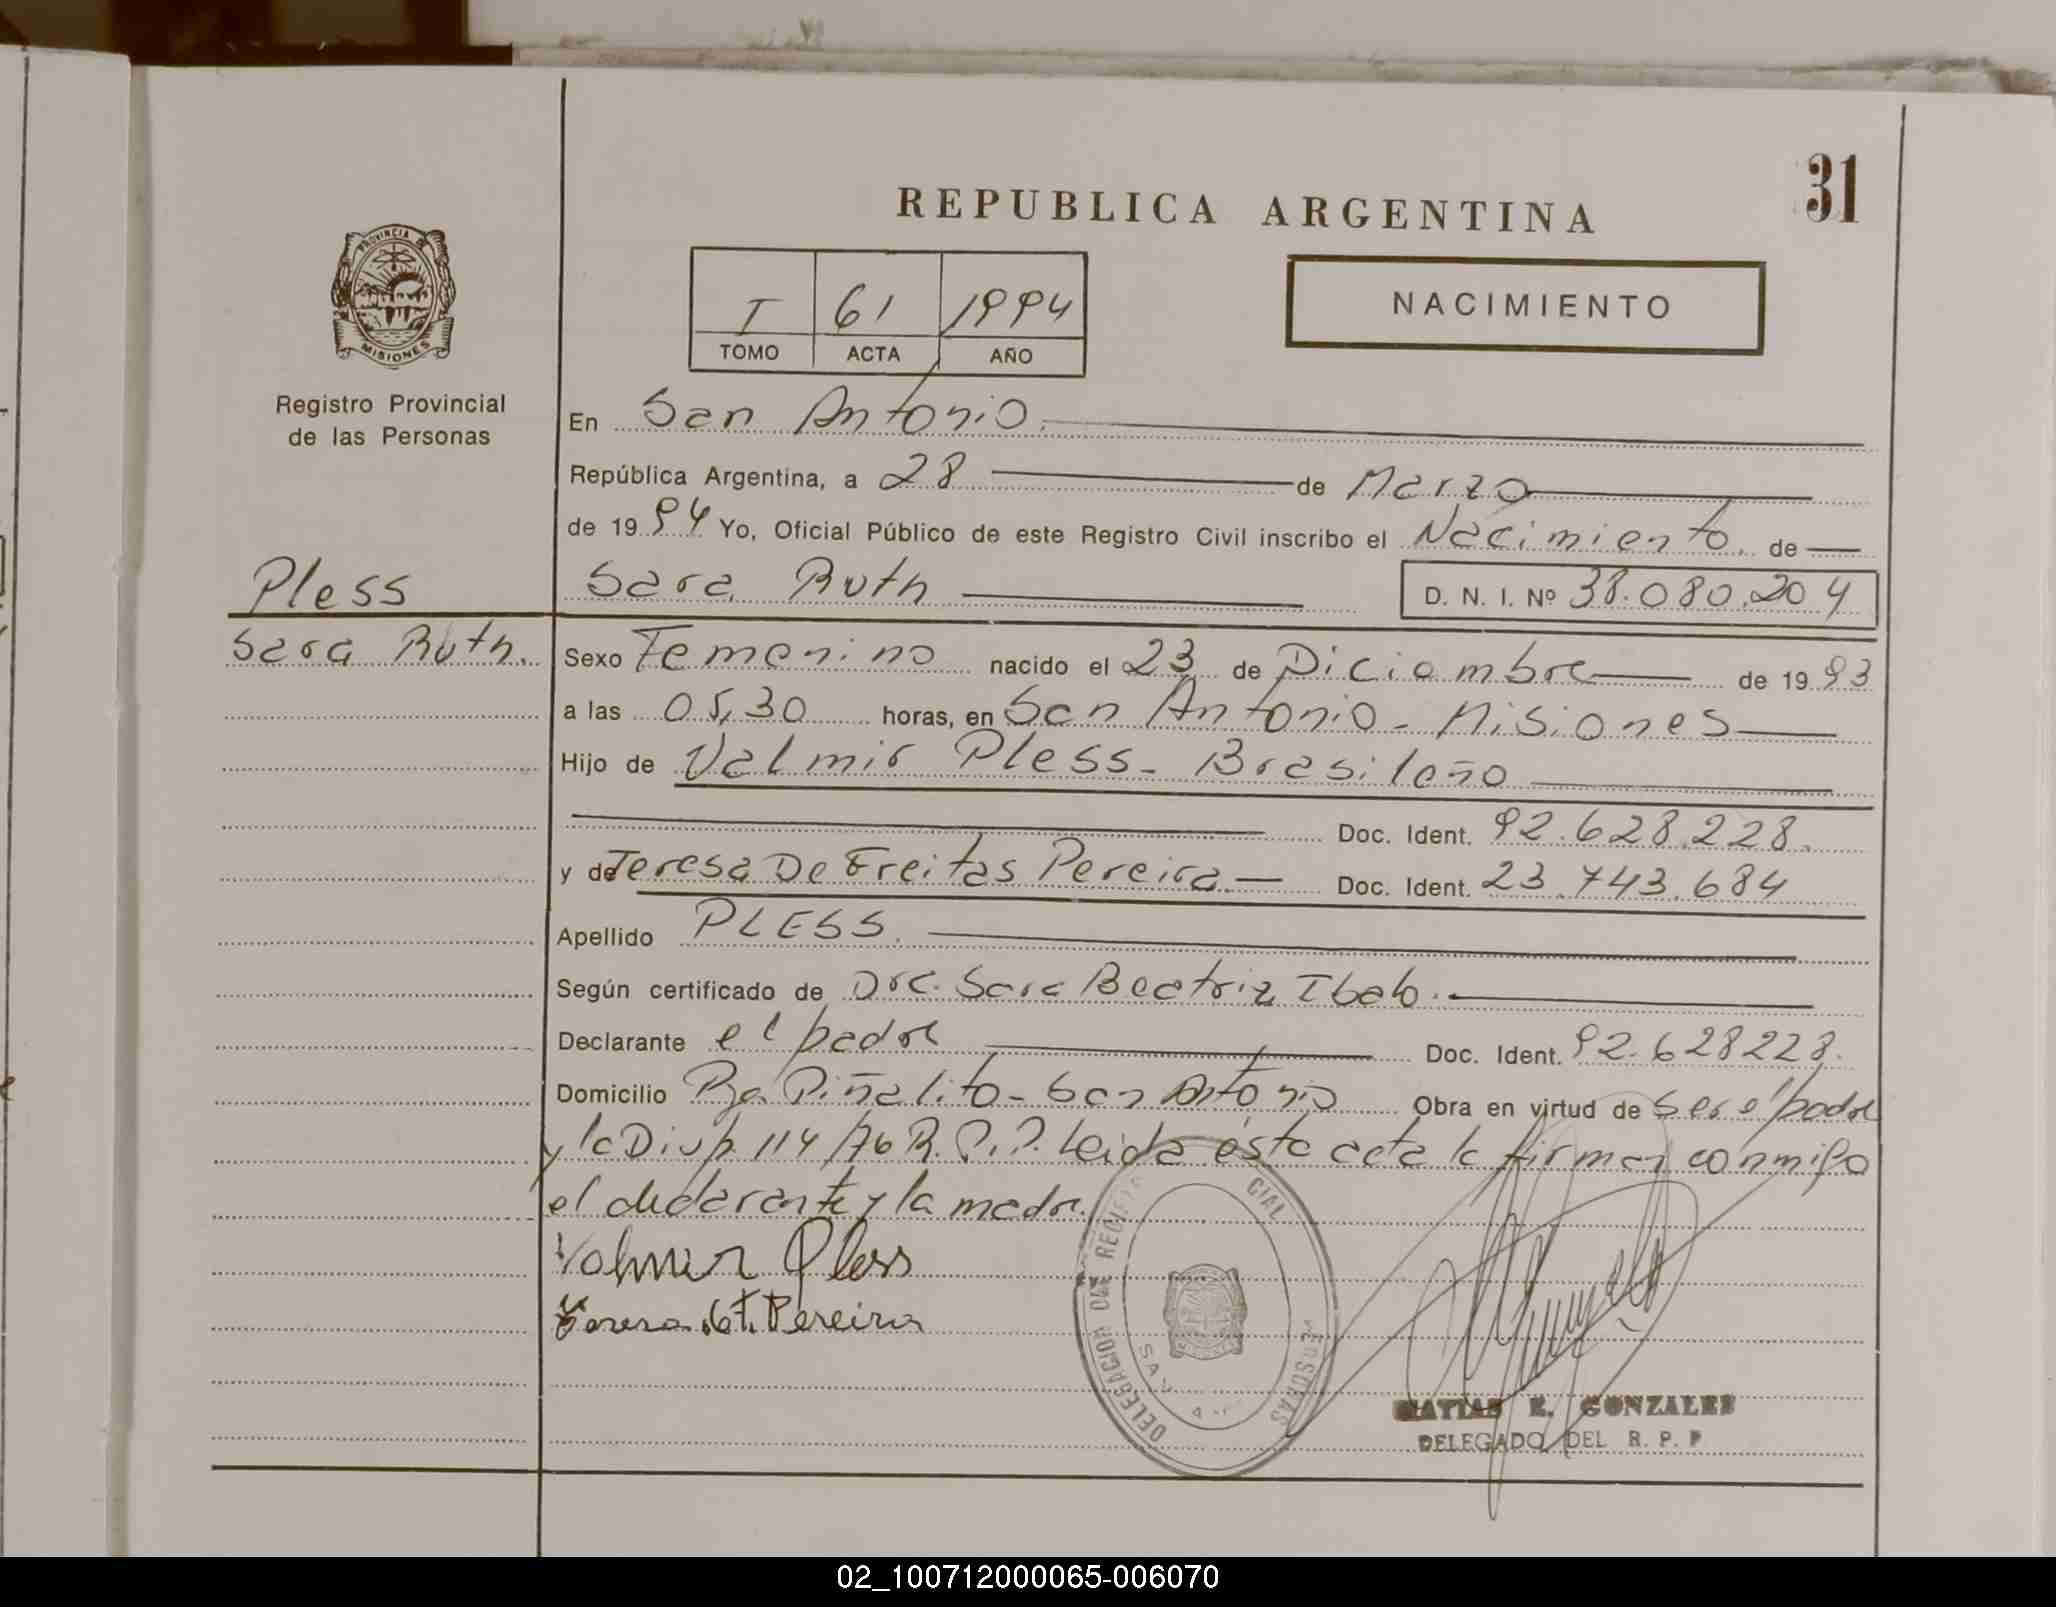 31
REPUBLICA ARGENTINA
PROVINCIA DE
MISIONES
I 61 1994
TOMO ACTA AÑO
NACIMIENTO
Registro Provincial
de las Personas
En San Antonio.
República Argentina, a 28 de Marzo
de 1994 Yo, Oficial Público de este Registro Civil inscribo el Nacimiento de
Pless
Sara Ruth D. N. I. Nº 38.080.204
Sara Ruth.
Sexo Femenino nacido el 23 de Diciembre de 1993
a las 05,30 horas, en San Antonio - Misiones
Hijo de Valmir Pless - Brasileño
Doc. Ident. 92.628.228.
y de Teresa De Freitas Pereira Doc. Ident. 23.743.684
Apellido PLESS.
Según certificado de Dra. Sara Beatriz
Declarante el padre Doc. Ident. 92.628228.
Domicilio Piñalito - San Antonio Obra en virtud de ser el padre
y la Disp. 114/76 R.P.P. Leida ésta acta la firman conmigo
el declarante y la madre.
Valmir Pless
Teresa d F. Pereira
DELEGACION
MATIAS E. GONZALEZ
DELEGADO DEL R. P. P
02_100712000065-006070